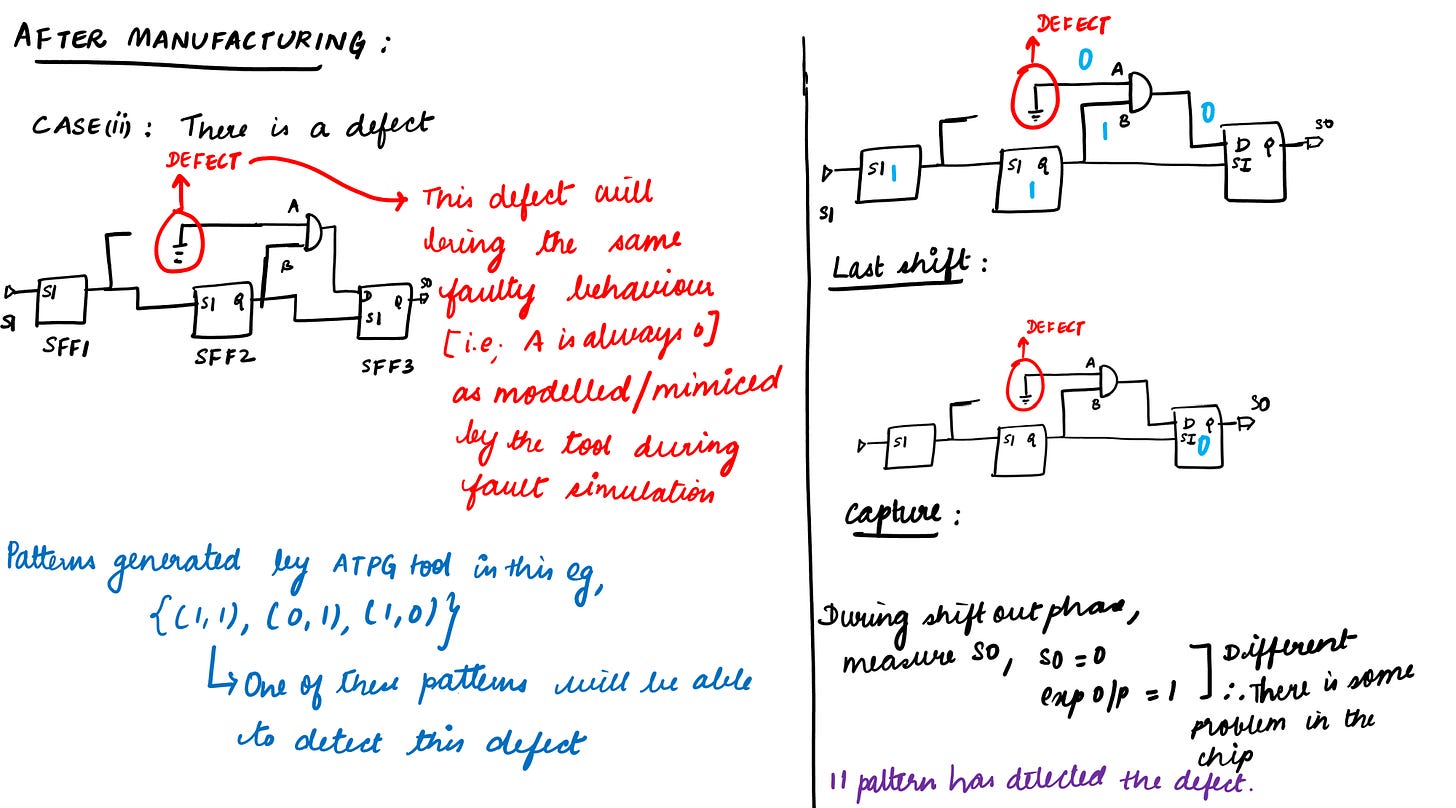 AFTER MANUFACTURING :
CASE(ii) : There is a defect
DEFECT
A
B
SI
SI
SI Q
D Q
SI
SO
SFF1
SFF2
SFF3
This defect will
bring the same
faulty behaviour
[i.e; A is always 0]
as modelled/mimiced
by the tool during
fault simulation
Patterns generated by ATPG tool in this eg,
{(1,1), (0,1), (1,0)}
One of these patterns will be able
to detect this defect
DEFECT
0
A
B
1
0
SI 1
SI
SI Q
1
D Q
SI
SO
Last shift :
DEFECT
A
B
SI
SI Q
D Q
SI 0
SO
Capture :
During shift out phase,
measure SO, SO = 0
exp o/p = 1
Different
∴ There is some
problem in the
chip
11 pattern has detected the defect.